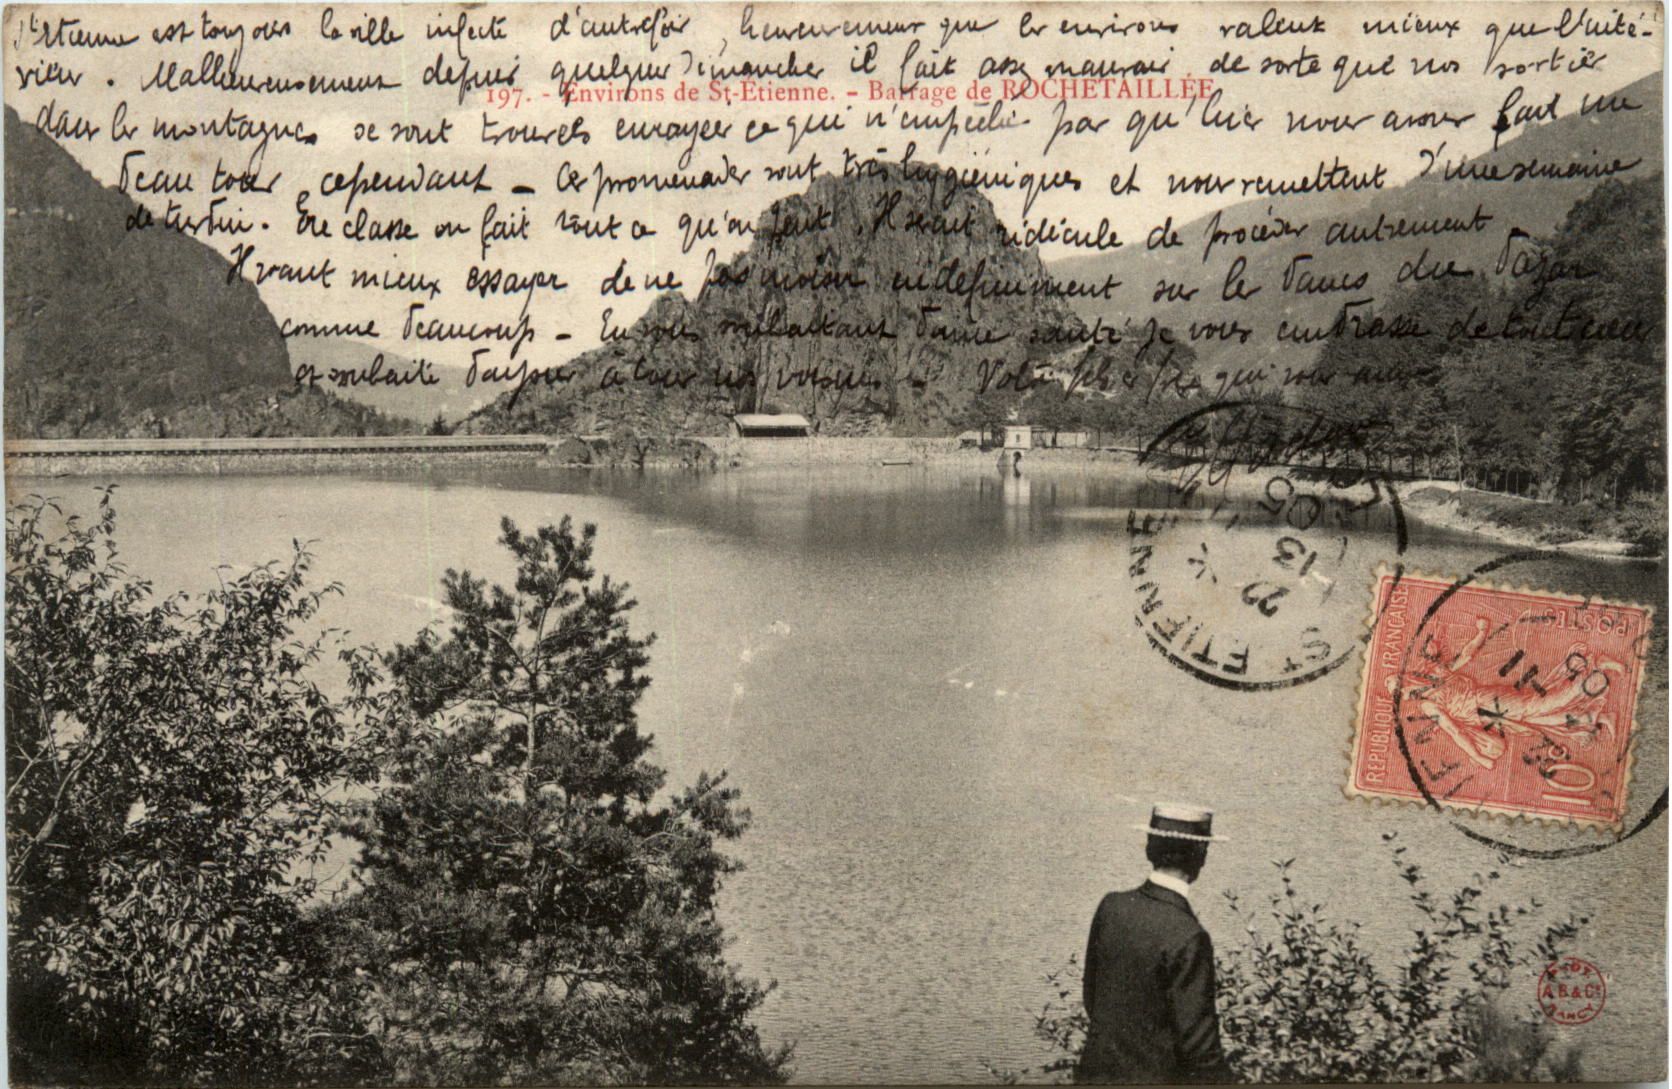 St Etienne est toujours la ville infecte d'autrefois, heureusement que les environs valent mieux que l'inté-
rieur. Malheureusement depuis quelques Dimanches il fait assez mauvais de sorte que nos sorties
197. - Environs de St-Etienne. - Barrage de ROCHETAILLÉE
dans les montagnes se sont trouvées enrayées ce qui n'empêche pas qu'hier nous avons fait un
beau tour cependant - Ces promenades sont très hygiéniques et nous remettent d'une semaine
de turbin. En classe on fait tout ce qu'on peut. Il serait ridicule de procéder autrement
Il vaut mieux essayer de ne pas moisir indéfiniment sur les bancs du bazar
comme beaucoup - En vous souhaitant bonne santé je vous embrasse de tout coeur
et souhaite bonjour à tous nos voisins - Votre fils et frère qui vous aime
ST ETIENNE
22
13
05
REPUBLIQUE FRANÇAISE
POSTES
10
11
05
PHOT.
A.B & Cie
NANCY